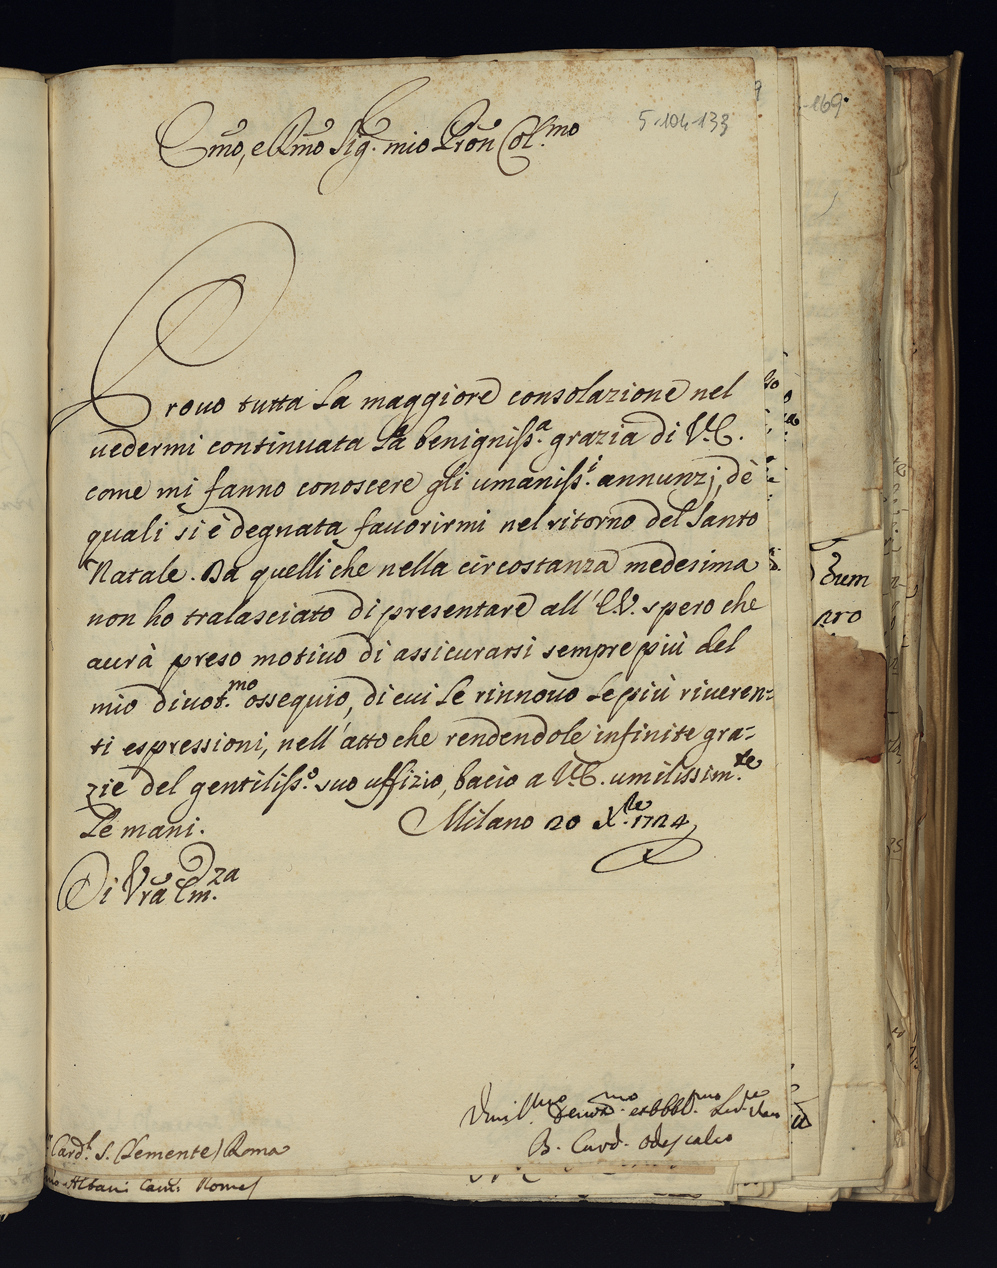 5-104-133
-169-
Emo, e Rmo Sig. mio Pron Col.mo
Provo tutta la maggiore consolazione nel
vedermi continuata la benigniss.a grazia di V.E.
come mi fanno conoscere gli umaniss.i annunzj, de
quali si è degnata favorirmi nel ritorno del Santo
Natale. Da quelli che nella circostanza medesima
non ho tralasciato di presentare all' E.V. spero che
aurà preso motivo di assicurarsi sempre più del
mio divot.mo ossequio, di cui le rinnovo le più riveren=
ti espressioni, nell' atto che rendendole infinite gra=
zie del gentiliss.o suo uffizio, bacio a V.E. umilissim.te
le mani. Milano 20 X.re 1724
Di Vra Em.za
Umil.mo devot.mo et obbl.mo
B. Card. Odescalco
Card.l S. Clemente) Roma
Albani Roma